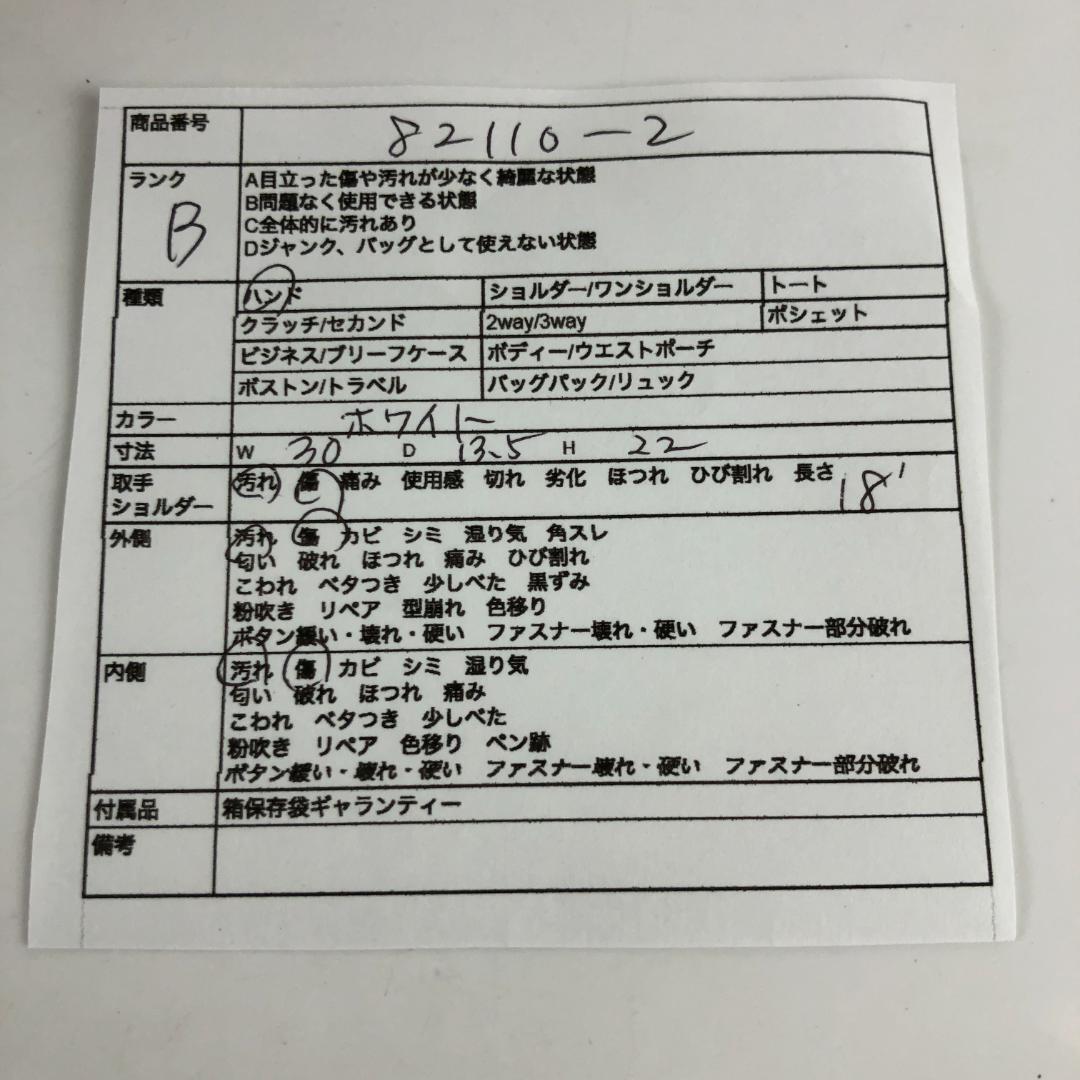 商品番号 82110-2
ランク B
A目立った傷や汚れが少なく綺麗な状態
B問題なく使用できる状態
C全体的に汚れあり
Dジャンク、バッグとして使えない状態
種類 ハンド ショルダー/ワンショルダー トート
クラッチ/セカンド 2way/3way ポシェット
ビジネス/ブリーフケース ボディー/ウエストポーチ
ボストン/トラベル バッグパック/リュック
カラー ホワイト
寸法 W 30 D 13.5 H 22
取手 汚れ 傷 痛み 使用感 切れ 劣化 ほつれ ひび割れ 長さ 18
ショルダー
外側 汚れ 傷 カビ シミ 湿り気 角スレ
匂い 破れ ほつれ 痛み ひび割れ
こわれ ベタつき 少しべた 黒ずみ
粉吹き リペア 型崩れ 色移り
ボタン緩い・壊れ・硬い ファスナー壊れ・硬い ファスナー部分破れ
内側 汚れ 傷 カビ シミ 湿り気
匂い 破れ ほつれ 痛み
こわれ ベタつき 少しべた
粉吹き リペア 色移り ペン跡
ボタン緩い・壊れ・硬い ファスナー壊れ・硬い ファスナー部分破れ
付属品 箱保存袋ギャランティー
備考